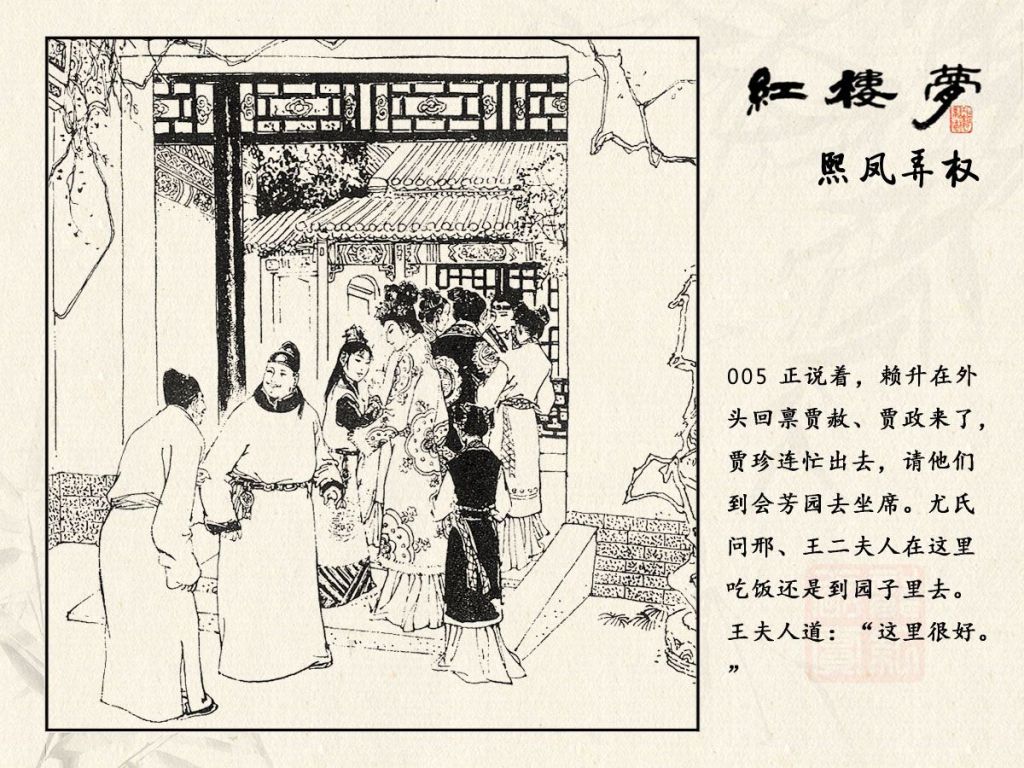 紅樓夢
熙凤弄权
005 正说着，赖升在外
头回禀贾赦、贾政来了，
贾珍连忙出去，请他们
到会芳园去坐席。尤氏
问邢、王二夫人在这里
吃饭还是到园子里去。
王夫人道：“这里很好。
”